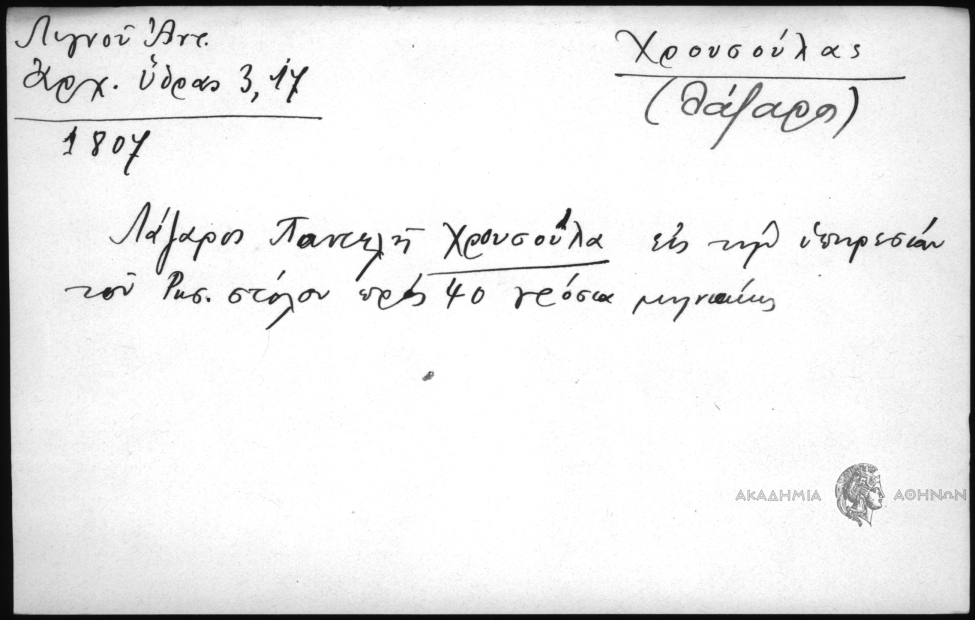 Λιγνοῦ Ἀντ.
Ἀρχ. Ὕδρας 3, 17
1807
Χρουσούλας
(Λάζαρος)
Λάζαρος Παντελῆ Χρουσούλα εἰς τὴν ὑπηρεσίαν
τοῦ Ρωσ. στόλου πρὸς 40 γρόσια μηνιαίως
ΑΚΑΔΗΜΙΑ ΑΘΗΝΩΝ